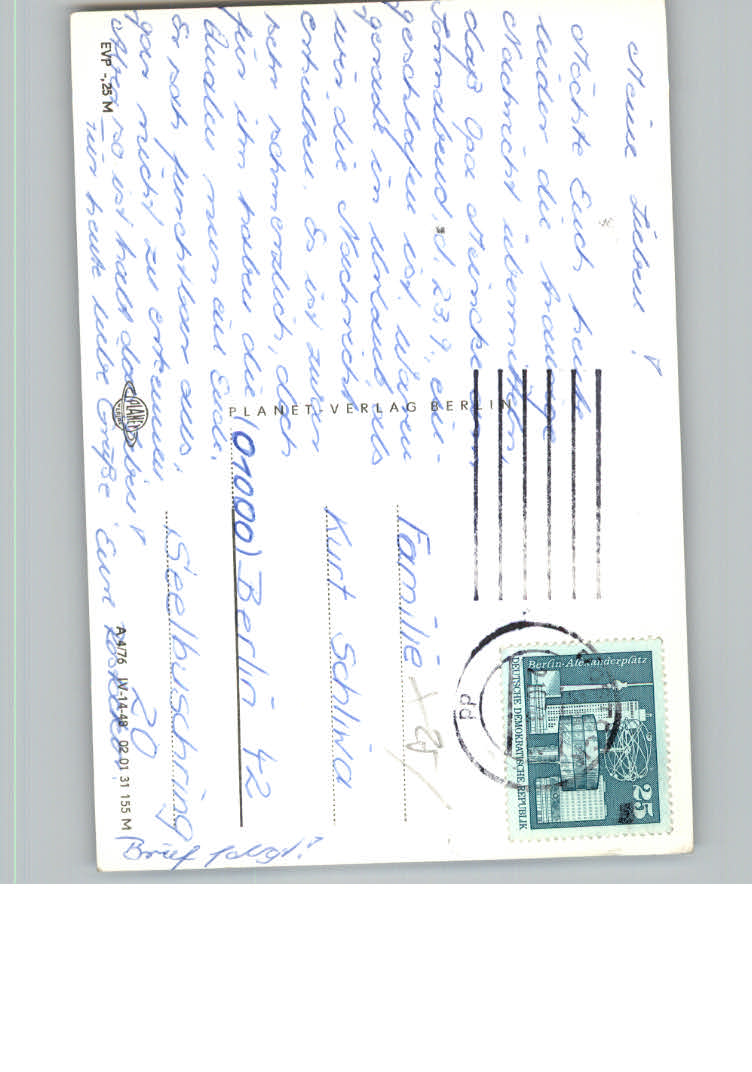 Meine Lieben!
Möchte Euch heute
leider die traurige
Nachricht übermitteln,
daß Opa Meincke am
Sonnabend, d. 23.9. ein-
geschlafen ist. Waren
gerade in Urlaub als
wir die Nachricht
erhielten. Es ist zwar
sehr schmerzlich, doch
für ihn haben die
Qualen nun ein Ende.
Er sah furchtbar aus,
gar nicht zu erkennen
Aber so ist halt das Leben!
Für heute liebe Grüße Eure
Brief folgt!
EVP -,25 M
PLANET
PLANET-VERLAG BERLIN
A 4/76 IV-14-48 02 01 31 155 M
Berlin-Alexanderplatz
DEUTSCHE DEMOKRATISCHE REPUBLIK
25
Familie
Kurt Schliwa
(01000) Berlin 42
Spelbuschring
20